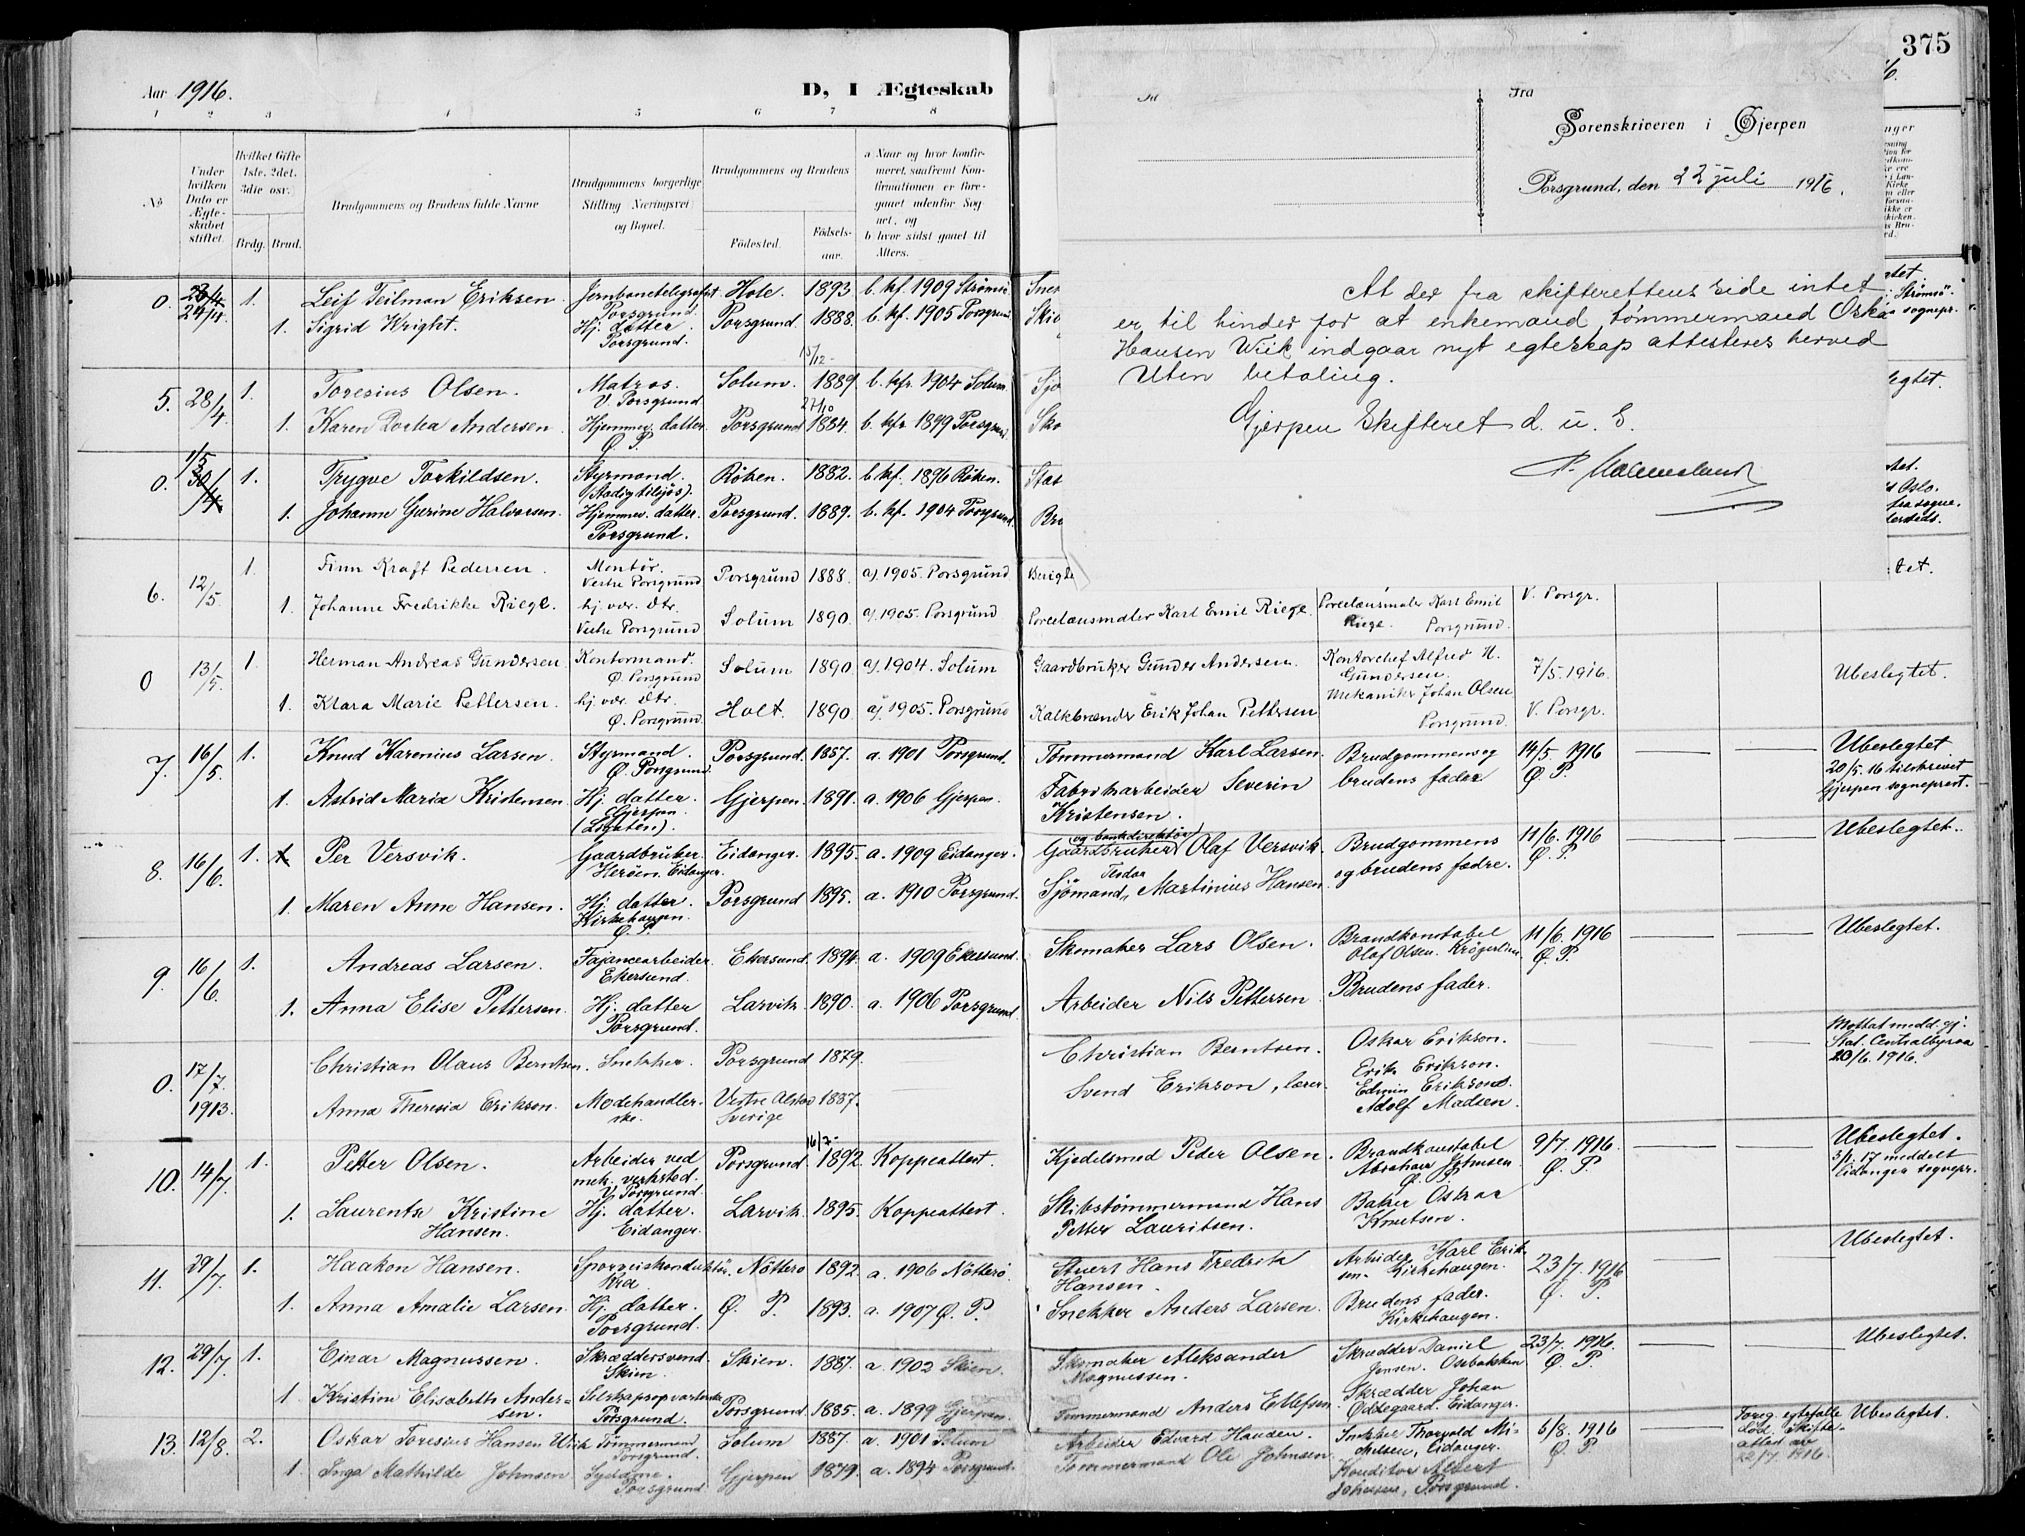 375
Aar 1916.
D, I Ægteskab
1 2 3 4 5 6 7 8
No
Under hvilken Dato er Ægteskabet stiftet.
Hvilket Gifte 1ste, 2det, 3die osv.
Brdg. Brud.
Brudgommens og Brudens fulde Navne
Brudgommens borgerlige Stilling Næringsvei og Bopæl.
Brudgommens og Brudens
Fødested.
Fødselsaar.
a Naar og hvor konfirmeret, saafremt Konfirmationen er foregaaet udenfor Sognet, og
b hvor sidst gaaet til Alters.
Fra
Sorenskriveren i Gjerpen
Porsgrund, den 22 juli 1916.
At der fra skifterettens side intet
er til hinder for at enkemand, tømmermand Oskar
Hansen Wiik indgaar nyt egteskap attesteres herved
Uten betaling.
Gjerpen Skifteret d. u. S.
0. 24/4. 1. Leif Teilman Eriksen. Jernbanetelegrafist Porsgrund. Hole. 1893. b. kf. 1909 Strømsø
1. Sigrid Kright. Hj. datter. Porsgrund. Porsgrund. 1888. b. kf. 1905 Porsgrund
5. 28/4. 1. Toresius Olsen. Matros. V. Porsgrund. Solum. 15/12- 1889. b. kfr. 1904 Solum
1. Karen Dorthea Andersen. Hjemmev. datter. Ø. P. Porsgrund 27/10 1884. b. kfr. 1899 Porsgrund
0. 1/5 30/4 1. Trygve Torkildsen. Styrmand. (Stadig tilsjøs). Røken. 1882. b. kf. 1896 Røken.
1. Johanne Gurine Halvorsen. Hjemmev. datter. Porsgrund. Porsgrund. 1889. b. kf. 1904 Porsgrund.
6. 12/5. 1. Finn Kraft Pedersen. Montør. Vestre Porsgrund Porsgrund 1888. a). 1905. Porsgrund
1. Johanne Fredrikke Riege. hj. vær. dtr. Vestre Porsgrund Solum 1890. a). 1905. Porsgrund Porcelænsmaler Karl Emil Riege. Porcelænsmaler Karl Emil Riege. Porsgrund. V. Porsgr.
0 13/5. 1. Herman Andreas Gundersen Kontormand. Ø. Porsgrund Solum 1890. a). 1904. Solum Gaardbruker Gunder Andersen. Kontorchef Alfred H. Gundersen. 7/5. 1916. Ubeslegtet.
1. Klara Marie Pettersen. hj. vær. dtr. Ø. Porsgrund. Holt. 1890. a). 1905. Porsgrund Kalkbrænder Erik Johan Pettersen Mekaniker Johan Olsen Porsgrund. V. Porsgr.
7. 16/5. 1. Knud Karenius Larsen. Styrmand. Ø. Porsgrund. Porsgrund. 1887. a. 1901 Porsgrund. Tømmermand Karl Larsen. Brudgommens og brudens fædre 14/5. 1916 Ø. P. Ubeslegtet. 20/5. 16 tilskrevet Gjerpen sogneprest.
1. Astrid Maria Kristensen Hj. datter. Gjerpen. Gjerpen. 1891. a. 1906 Gjerpen. Fabrikarbeider Severin Kristensen.
8. 16/6. 1. Per Versvik. Gaardbruker. Herøen. Eidanger. Eidanger. 1895. a. 1909 Eidanger. Gaardbruker og bankdirektør Olaf Versvik. Brudgommens og brudens fædre. 11/6. 1916 Ø. P. Ubeslegtet.
1. Maren Anne Hansen. Hj. datter. Kirkehaugen. Ø. P. Porsgrund 1895. a. 1910 Porsgrund. Sjømand, Martinius Hansen.
9. 16/6. 1. Andreas Larsen. Fajancearbeider. Ekersund. Ekersund. 1894. a. 1909 Ekersund. Skomaker Lars Olsen. Brandkonstabel Olaf Olsen. 11/6. 1916 Ø. P. Ubeslegtet.
1. Anna Elise Pettersen. Hj. datter Porsgrund. Larvik. 1890. a. 1906 Porsgrund Arbeider Nils Pettersen Brudens fader.
0. 17/7. 1913. Christian Olaus Berntsen. Snekker. Porsgrund 1879. Christian Berntsen. Oskar Erikson. Erik Erikson. Mottat medd. gj. Stat. Centralbyraa 20/6. 1916.
Anna Theresia Erikson. Modehandlerske. Vestre Alstad Sverige 1887. Svend Erikson, lærer. Edvin Eriksons. Adolf Madsen.
10. 14/7. 1. Petter Olsen. Arbeider ved mek. verksted. V. Porsgrund. Porsgrund 16/7- 1892. Koppeattest. Kjedelsmed Peder Olsen. Brandkonstabel Abraham Johnsen Ø. P. 9/7. 1916 Ø. P Ubeslegtet. 3/1. 17 meddelt Eidanger sognepr.
1. Laurentze Kristine Hansen. Hj. datter. Eidanger. Larvik. 1895. Koppeattest. Skibstømmermand Hans Petter Lauritsen. Baker Oskar Knutsen.
11. 29/7. 1. Haakon Hansen. Sporveiskonduktør. Kra Nøtterø 1892. a. 1906 Nøtterø. Stuert Hans Fredrik Hansen. Arbeider Karl Eriksen. Kirkehaugen. 23/7. 1916 Ø. P. Ubeslegtet.
1. Anna Amalie Larsen. Hj. datter. Porsgrund. Ø. P. 1893. a. 1907 Ø. P. Snekker Anders Larsen. Brudens fader. Kirkehaugen.
12. 29/7. 1. Ejnar Magnussen. Skræddersvend. Skien. Skien. 1887. a. 1902 Skien. Skomaker Aleksander Magnussen. Skrædder Daniel Jensen. Osebakken 23/7. 1916. Ø. P Ubeslegtet.
1. Kristine Elisabeth Andersen. Selskapsopvarterske Porsgrund. Porsgrund. 1885. a. 1899 Gjerpen. Tømmermand Anders Ellefsen Skrædder Johan Oddegaard. Eidanger.
13. 12/8. 2. Oskar Toresius Hansen Wiik Tømmermand Porsgrund. Solum 1887. a. 1901 Solum Arbeider Edvard Hansen. Snekker Thorvald Mikelsen, Eidanger. 6/8. 1916 Ø. P Foreg. egtefælle død. Skifteattest av 22/7. 1916. Ubeslegtet.
1. Inga Mathilde Johnsen Sydame. Porsgrund Gjerpen 1879. a. 1894 Porsgrund. Tømmermand Ole Johnsen. Konditor Albert Johnsen, Porsgrund.